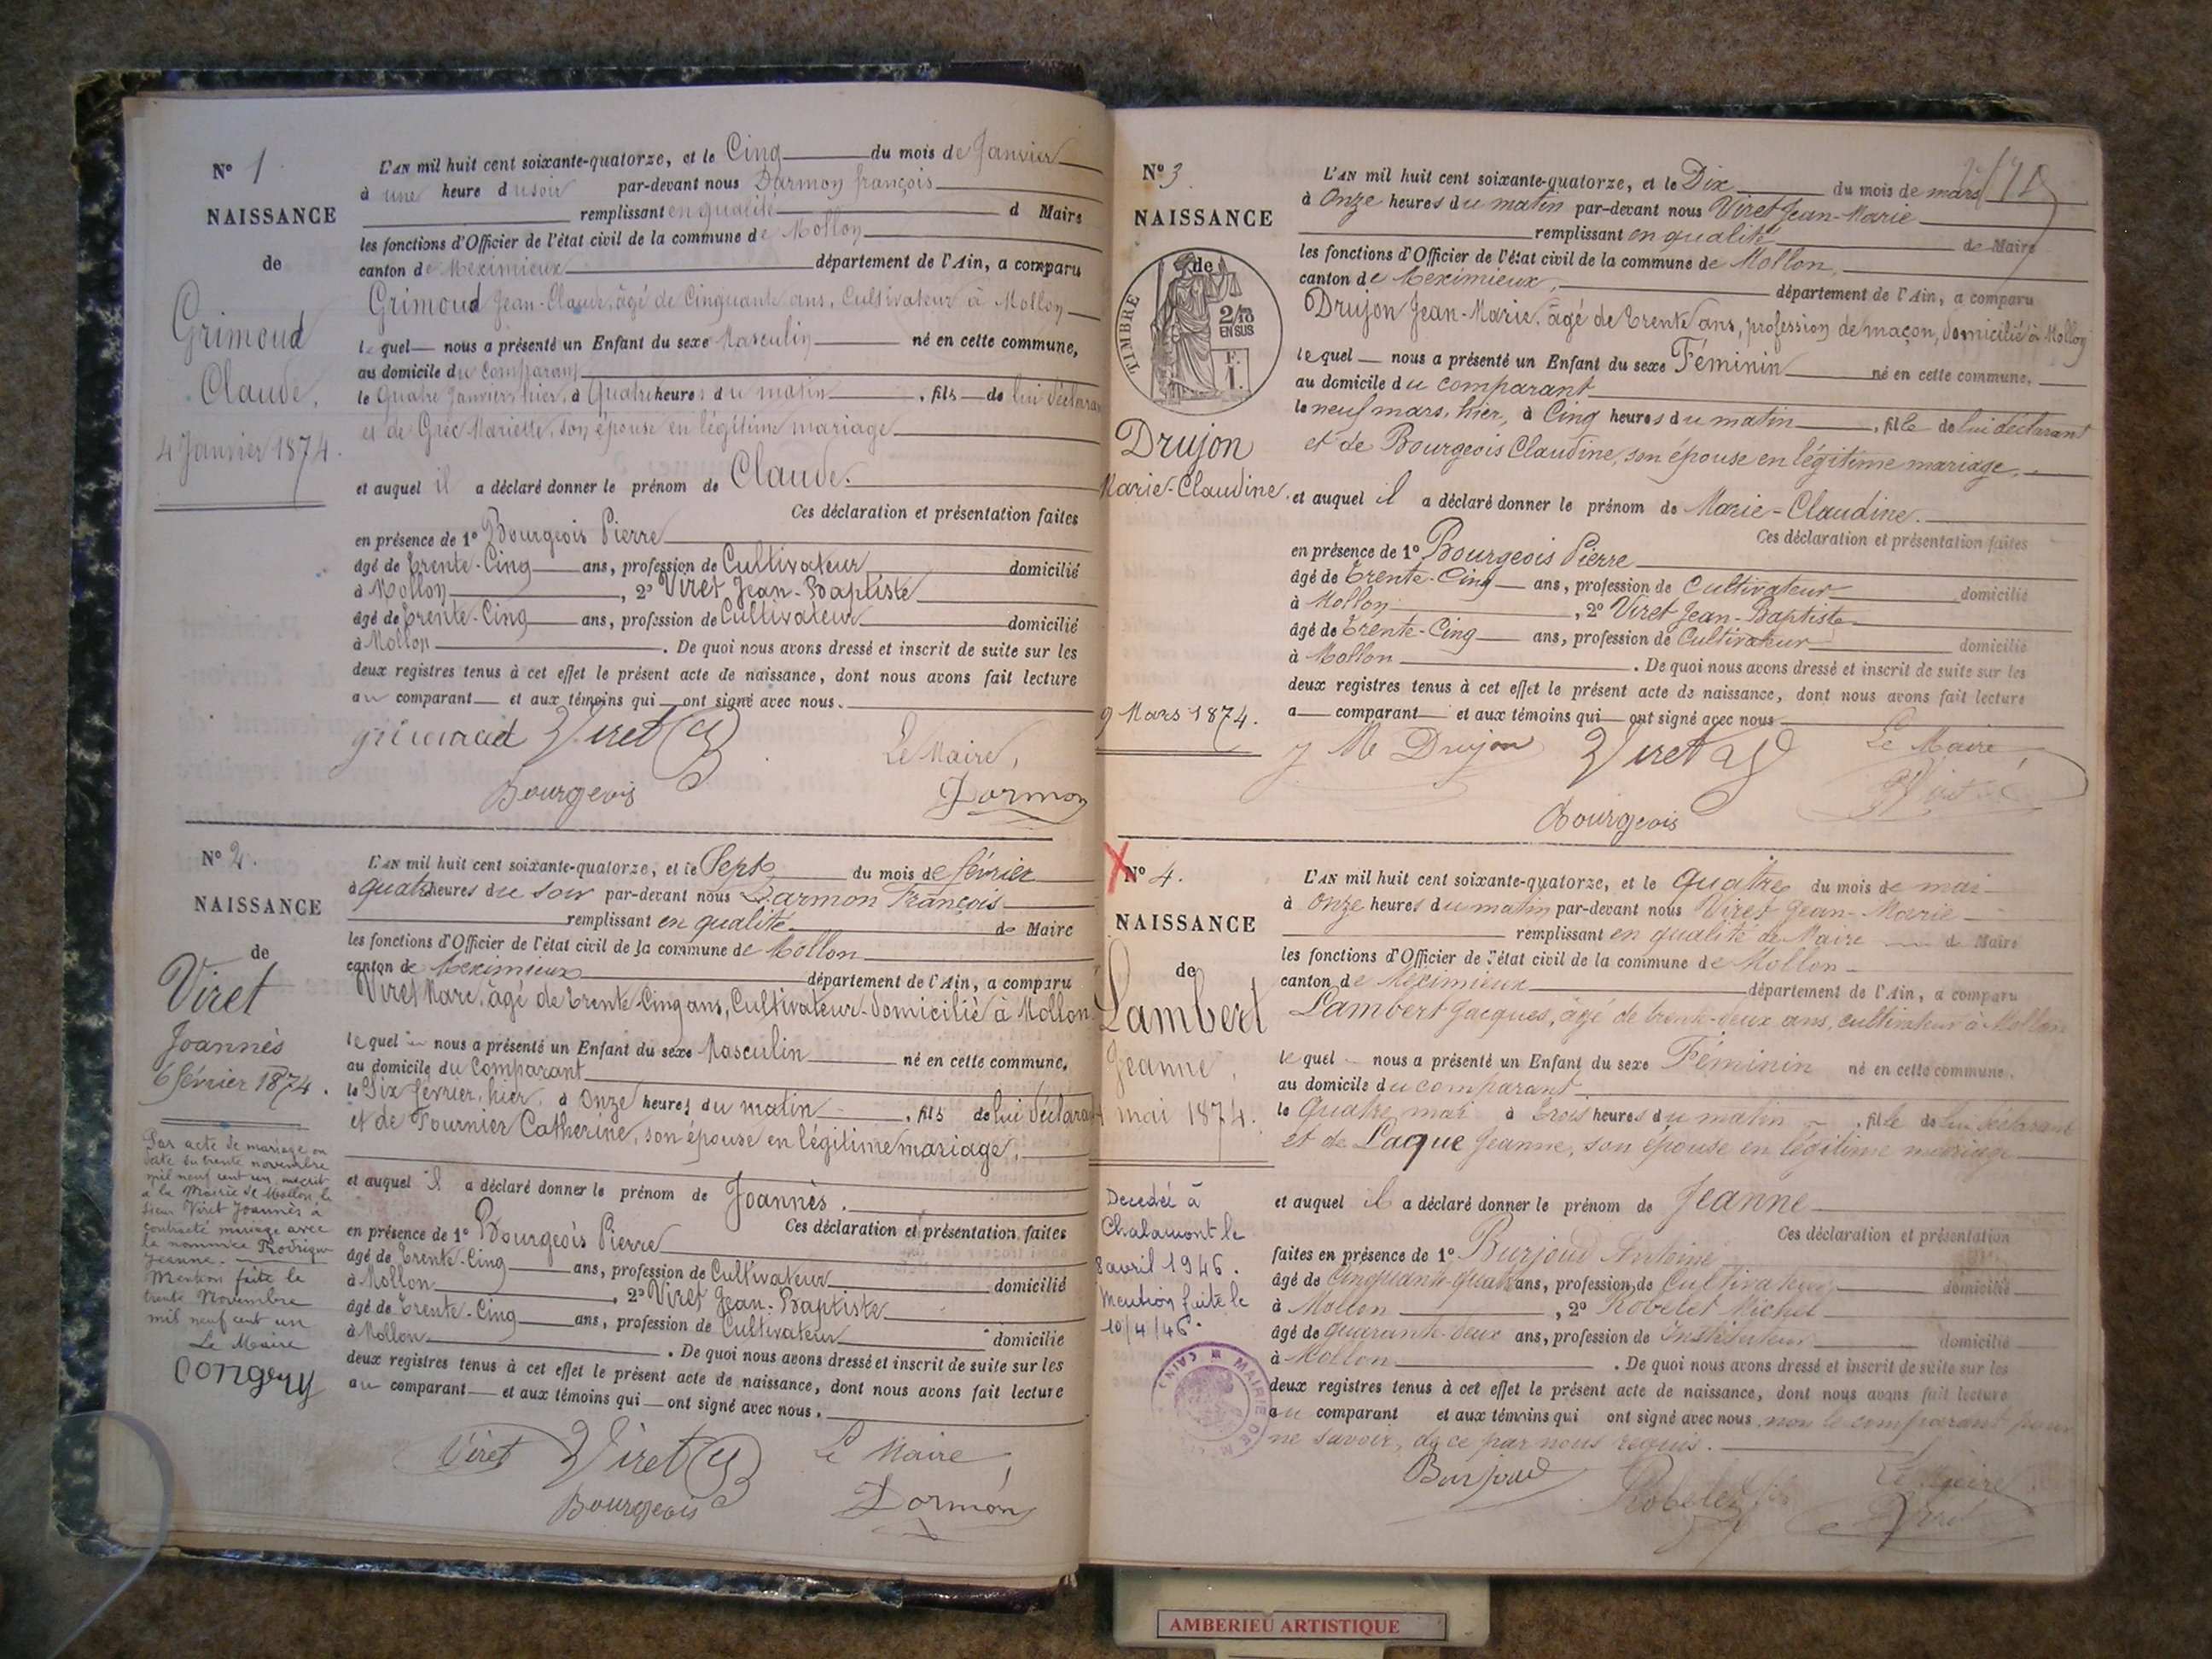 N° 1
NAISSANCE
de
Grimoud
Claude,
4 Janvier 1874.
L'AN mil huit cent soixante-quatorze, et le Cinq du mois de Janvier
à une heure du soir par-devant nous Darmon françois
remplissant en qualité d Maire
les fonctions d'Officier de l'état civil de la commune de Mollon
canton de Meximieux département de l'Ain, a comparu
Grimoud Jean-Claude, âgé de Cinquante ans, Cultivateur à Mollon
lequel nous a présenté un Enfant du sexe Masculin né en cette commune,
au domicile du Comparant
le Quatre Janvier, hier, à Quatre heures du matin, fils de lui déclarant
et de Grec Mariette, son épouse en légitime mariage
et auquel il a déclaré donner le prénom de Claude.
Ces déclaration et présentation faites
en présence de 1° Bourgeois Pierre
âgé de Trente-Cinq ans, profession de Cultivateur domicilié
à Mollon, 2° Viret Jean-Baptiste
âgé de Trente-Cinq ans, profession de Cultivateur domicilié
à Mollon. De quoi nous avons dressé et inscrit de suite sur les
deux registres tenus à cet effet le présent acte de naissance, dont nous avons fait lecture
au comparant et aux témoins qui ont signé avec nous.
Viret
Le Maire,
Bourgeois
Darmon
N° 2.
NAISSANCE
de
Viret
Joannès
6 février 1874.
Par acte de mariage en
date du trente novembre
mil neuf cent un, inscrit
à la Mairie de Mollon, le
sieur Viret Joannès a
contracté mariage avec
la nommée Rodrigue
Jeanne.
Mention faite le
trente Novembre
mil neuf cent un
Le Maire
L'AN mil huit cent soixante-quatorze, et le Sept du mois de février
à quatre heures du soir par-devant nous Darmon François
remplissant en qualité de Maire
les fonctions d'Officier de l'état civil de la commune de Mollon
canton de Meximieux département de l'Ain, a comparu
Viret Marc, âgé de Trente-Cinq ans, Cultivateur domicilié à Mollon
lequel nous a présenté un Enfant du sexe Masculin né en cette commune,
au domicile du Comparant
le Six février, hier, à Onze heures du matin, fils de lui déclarant
et de Fournier Catherine, son épouse en légitime mariage,
et auquel il a déclaré donner le prénom de Joannès.
Ces déclaration et présentation faites
en présence de 1° Bourgeois Pierre
âgé de Trente-Cinq ans, profession de Cultivateur domicilié
à Mollon, 2° Viret Jean-Baptiste
âgé de Trente-Cinq ans, profession de Cultivateur domicilié
à Mollon. De quoi nous avons dressé et inscrit de suite sur les
deux registres tenus à cet effet le présent acte de naissance, dont nous avons fait lecture
au comparant et aux témoins qui ont signé avec nous.
Viret Viret Le Maire,
Bourgeois Darmon
N° 3
NAISSANCE
de
TIMBRE
2/10
EN SUS
F.
1.
Drujon
Marie-Claudine.
9 Mars 1874.
L'AN mil huit cent soixante-quatorze, et le Dix du mois de mars
à Onze heures du matin par-devant nous Viret Jean-Marie
remplissant en qualité de Maire
les fonctions d'Officier de l'état civil de la commune de Mollon,
canton de Meximieux, département de l'Ain, a comparu
Drujon Jean-Marie, âgé de Trente ans, profession de maçon, domicilié à Mollon
lequel nous a présenté un Enfant du sexe Féminin né en cette commune,
au domicile du comparant
le neuf mars, hier, à Cinq heures du matin, fille de lui déclarant
et de Bourgeois Claudine, son épouse en légitime mariage,
et auquel il a déclaré donner le prénom de Marie-Claudine.
Ces déclaration et présentation faites
en présence de 1° Bourgeois Pierre
âgé de Trente-Cinq ans, profession de Cultivateur domicilié
à Mollon, 2° Viret Jean-Baptiste
âgé de Trente-Cinq ans, profession de Cultivateur domicilié
à Mollon. De quoi nous avons dressé et inscrit de suite sur les
deux registres tenus à cet effet le présent acte de naissance, dont nous avons fait lecture
a comparant et aux témoins qui ont signé avec nous
J M Drujon Viret Le Maire,
Bourgeois
N° 4.
NAISSANCE
de
Lambert
Jeanne,
4 mai 1874.
Decedée à
Chalamont le
8 avril 1946.
Mention faite le
10/4/46.
MAIRIE DE
L'AN mil huit cent soixante-quatorze, et le quatre du mois de mai
à Onze heures du matin par-devant nous Viret Jean-Marie
remplissant en qualité de Maire de Maire
les fonctions d'Officier de l'état civil de la commune de Mollon
canton de Meximieux département de l'Ain, a comparu
Lambert Jacques, âgé de trente-deux ans, cultivateur à Mollon
lequel nous a présenté un Enfant du sexe Féminin né en cette commune,
au domicile du comparant
le Quatre mai à trois heures du matin, fille de lui déclarant
et de Laque Jeanne, son épouse en légitime mariage
et auquel il a déclaré donner le prénom de Jeanne
Ces déclaration et présentation
faites en présence de 1° Burjoud Antoine
âgé de Cinquante-quatre ans, profession de Cultivateur domicilié
à Mollon, 2° Robelet Michel
âgé de quarante-deux ans, profession de Instituteur domicilié
à Mollon. De quoi nous avons dressé et inscrit de suite sur les
deux registres tenus à cet effet le présent acte de naissance, dont nous avons fait lecture
au comparant et aux témoins qui ont signé avec nous non le comparant pour
ne savoir, de ce par nous requis.
Burjoud Robelet Le Maire
Viret
AMBERIEU ARTISTIQUE